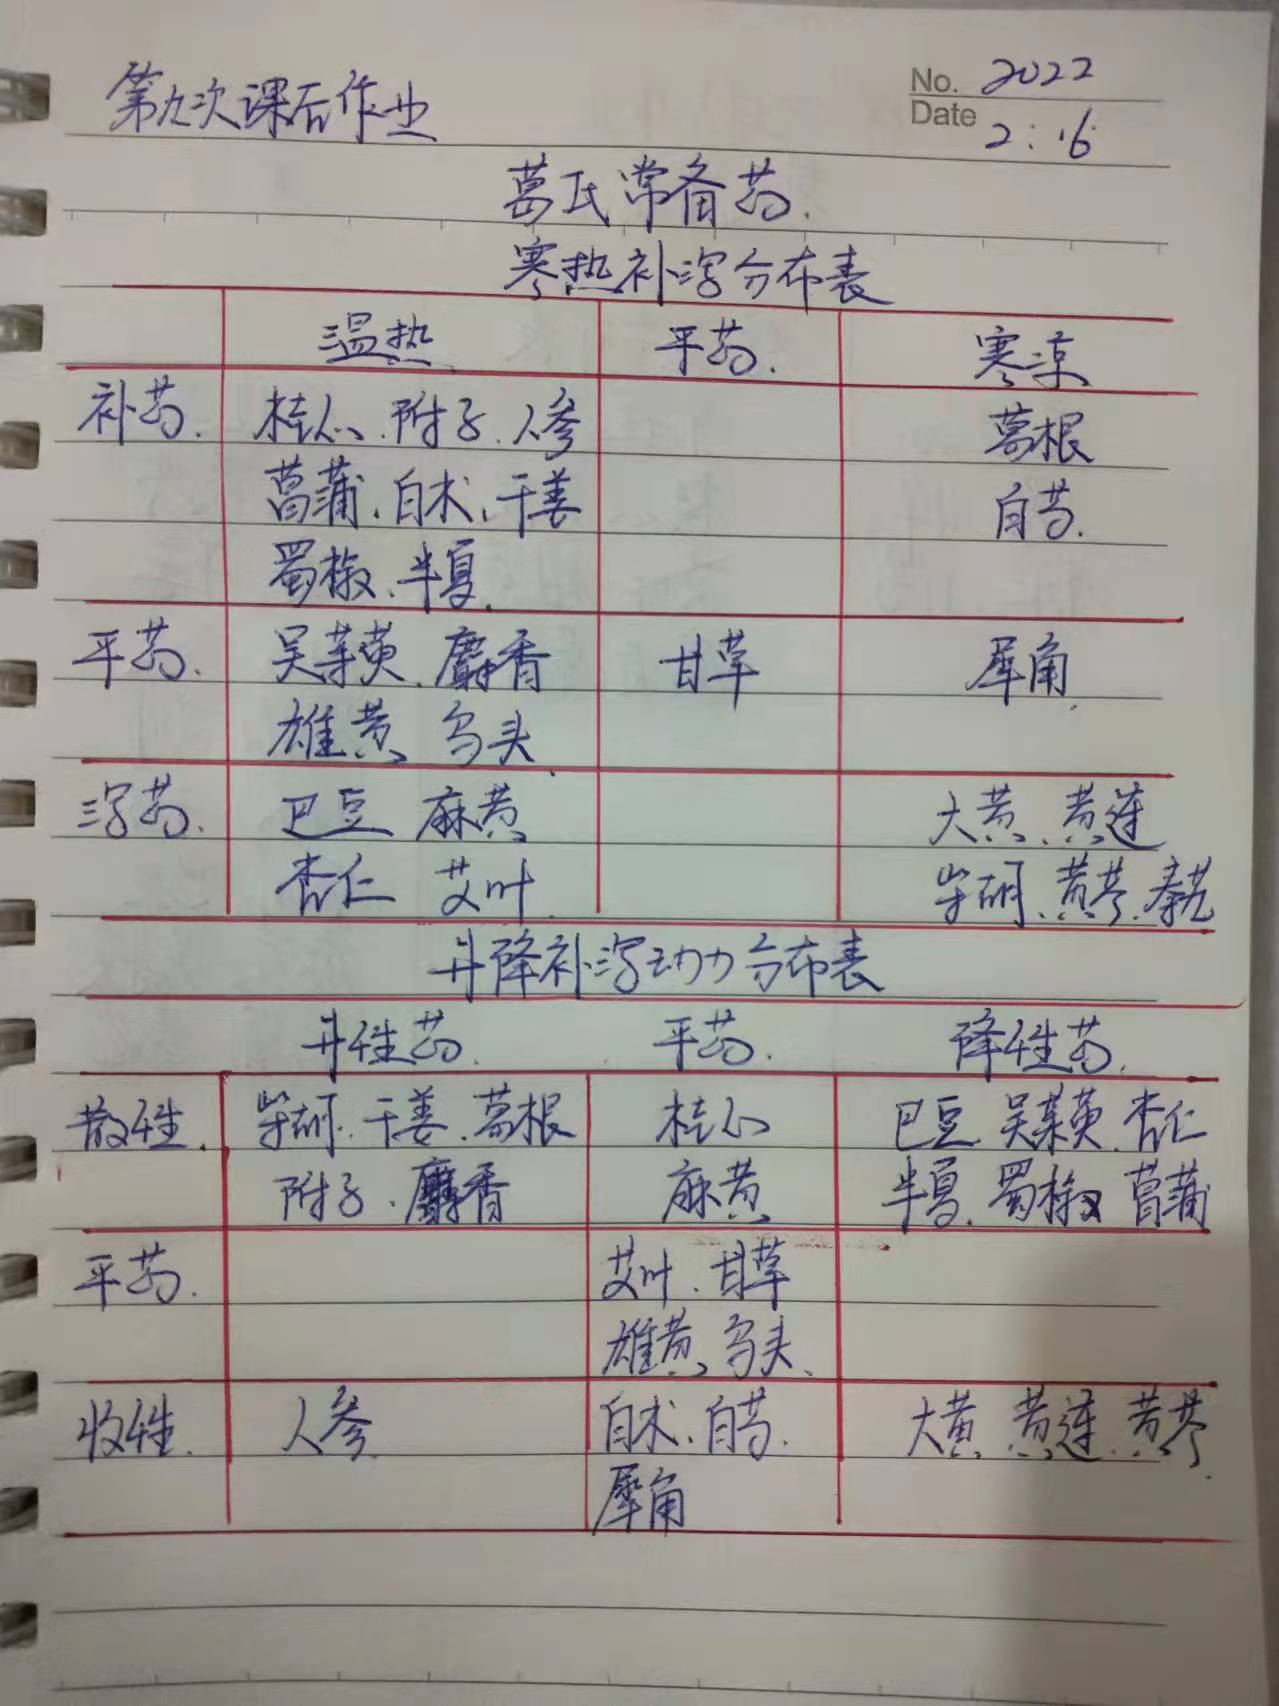 第九次课后作业
No. 2022
Date 2:16
葛氏常备药.
寒热补泻分布表
温热 平药. 寒凉
补药. 桂心、附子、人参 葛根
菖蒲、白术、干姜 白芍.
蜀椒、半夏.
平药. 吴茱萸、麝香 甘草 犀角
雄黄、乌头
泻药. 巴豆 麻黄 大黄、黄连
杏仁 艾叶 柴胡、黄芩、秦艽
升降补泻动力分布表
升性药. 平药. 降性药.
散性. 柴胡、干姜、葛根 桂心 巴豆 吴茱萸、杏仁
附子、麝香 麻黄 半夏、蜀椒 菖蒲
平药. 艾叶、甘草
雄黄、乌头、
收性. 人参 白术、白芍. 大黄 黄连、黄芩.
犀角